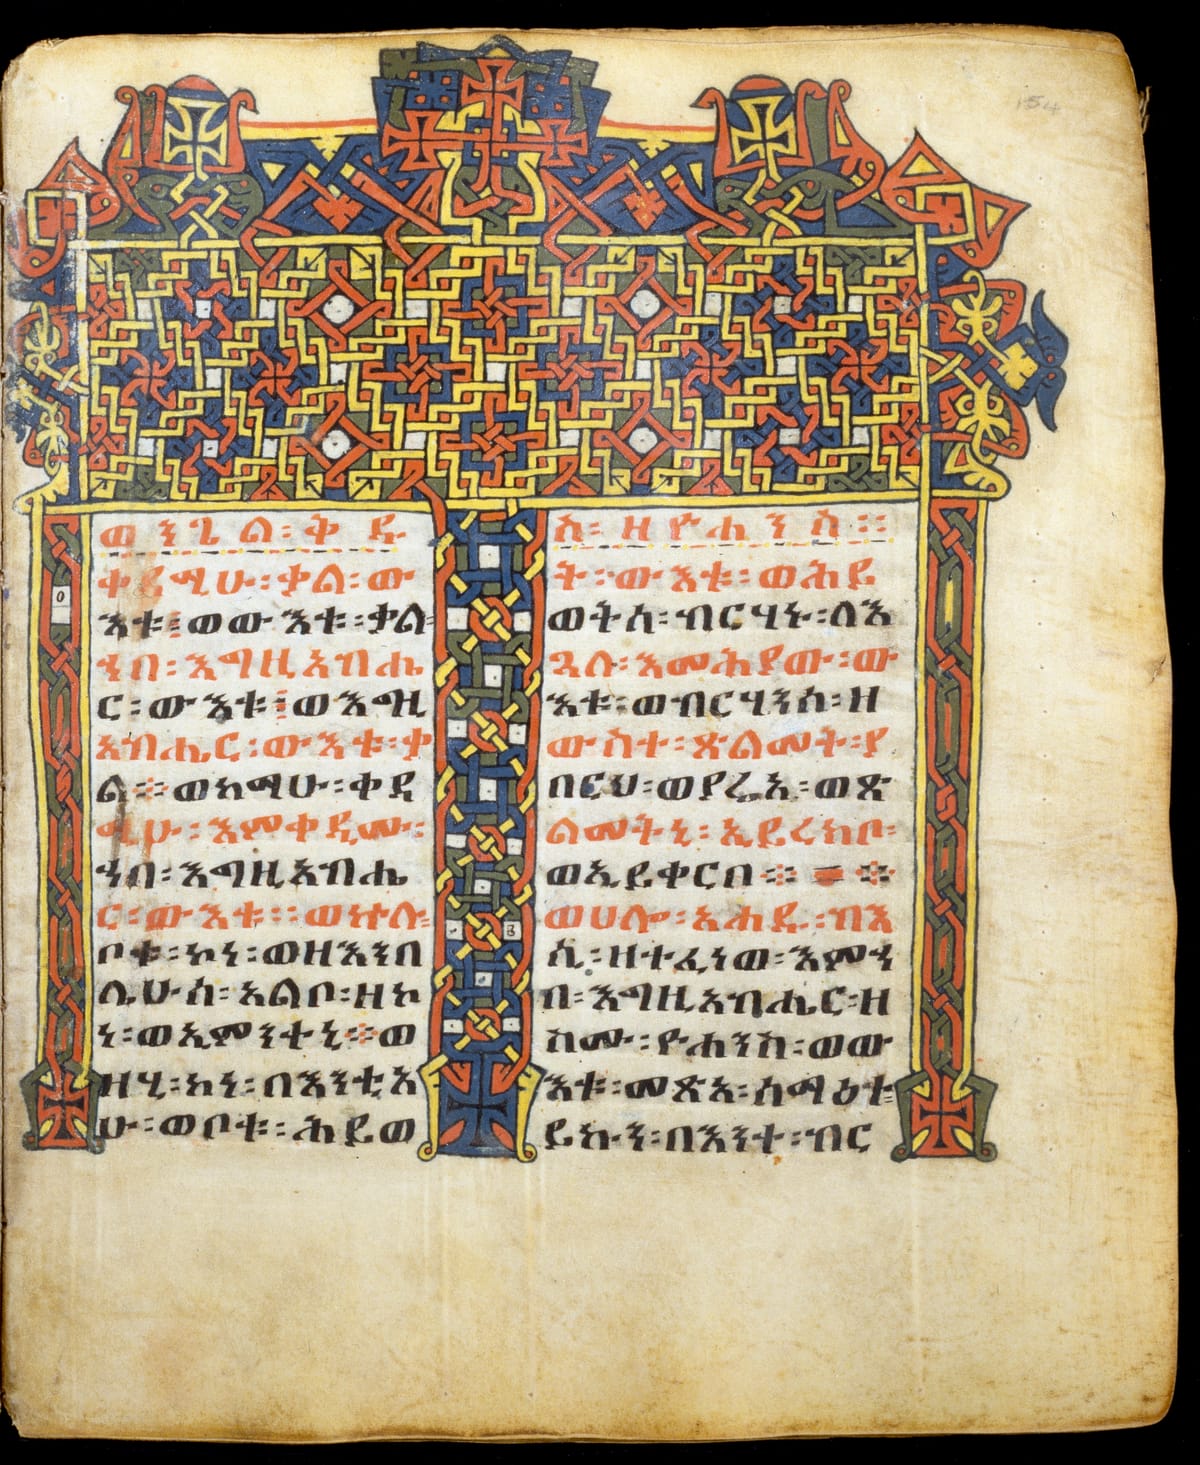 154
ወንጌል፡ቅዱ
ቀዳሚሁ፡ቃል፡ው
እቱ፡ወውእቱ፡ቃል፡
ኀበ፡እግዚአብሔ
ር፡ውእቱ፡ወእግዚ
አብሔር፡ውእቱ፡ቃ
ል፨ወከማሁ፡ቀዳ
ሚሁ፡እምቀዲሙ፡
ኀበ፡እግዚአብሔ
ር፡ውእቱ።ወኵሉ፡
ቦቱ፡ኮነ፡ወዘእንበ
ሌሁሰ፡አልቦ፡ዘኮ
ነ፡ወኢምንተኒ፨ወ
ዘሂ፡ኮነ፡በእንቲአ
ሁ፡ወቦቱ፡ሕይወ
ስ፡ዘዮሐንስ።
ት፡ውእቱ፡ወሕይ
ወትሰ፡ብርሃኑ፡ለእ
ጓለ፡እመሕያው፡ው
እቱ፡ወብርሃንሰ፡ዘ
ውስተ፡ጽልመት፡ያ
በርህ፡ወያሬኢ፡ወጽ
ልመትኒ፡ኢይረክቦ፡
ወኢይቀርቦ፨=፨
ወሀሎ፡አሐዱ፡ብእ
ሲ፡ዘተፈነወ፡እምኀ
በ፡እግዚአብሔር፡ዘ
ስሙ፡ዮሐንስ፡ወው
እቱ፡መጽአ፡ሰማዕተ፡
ይኩን፡በእንተ፡ብር